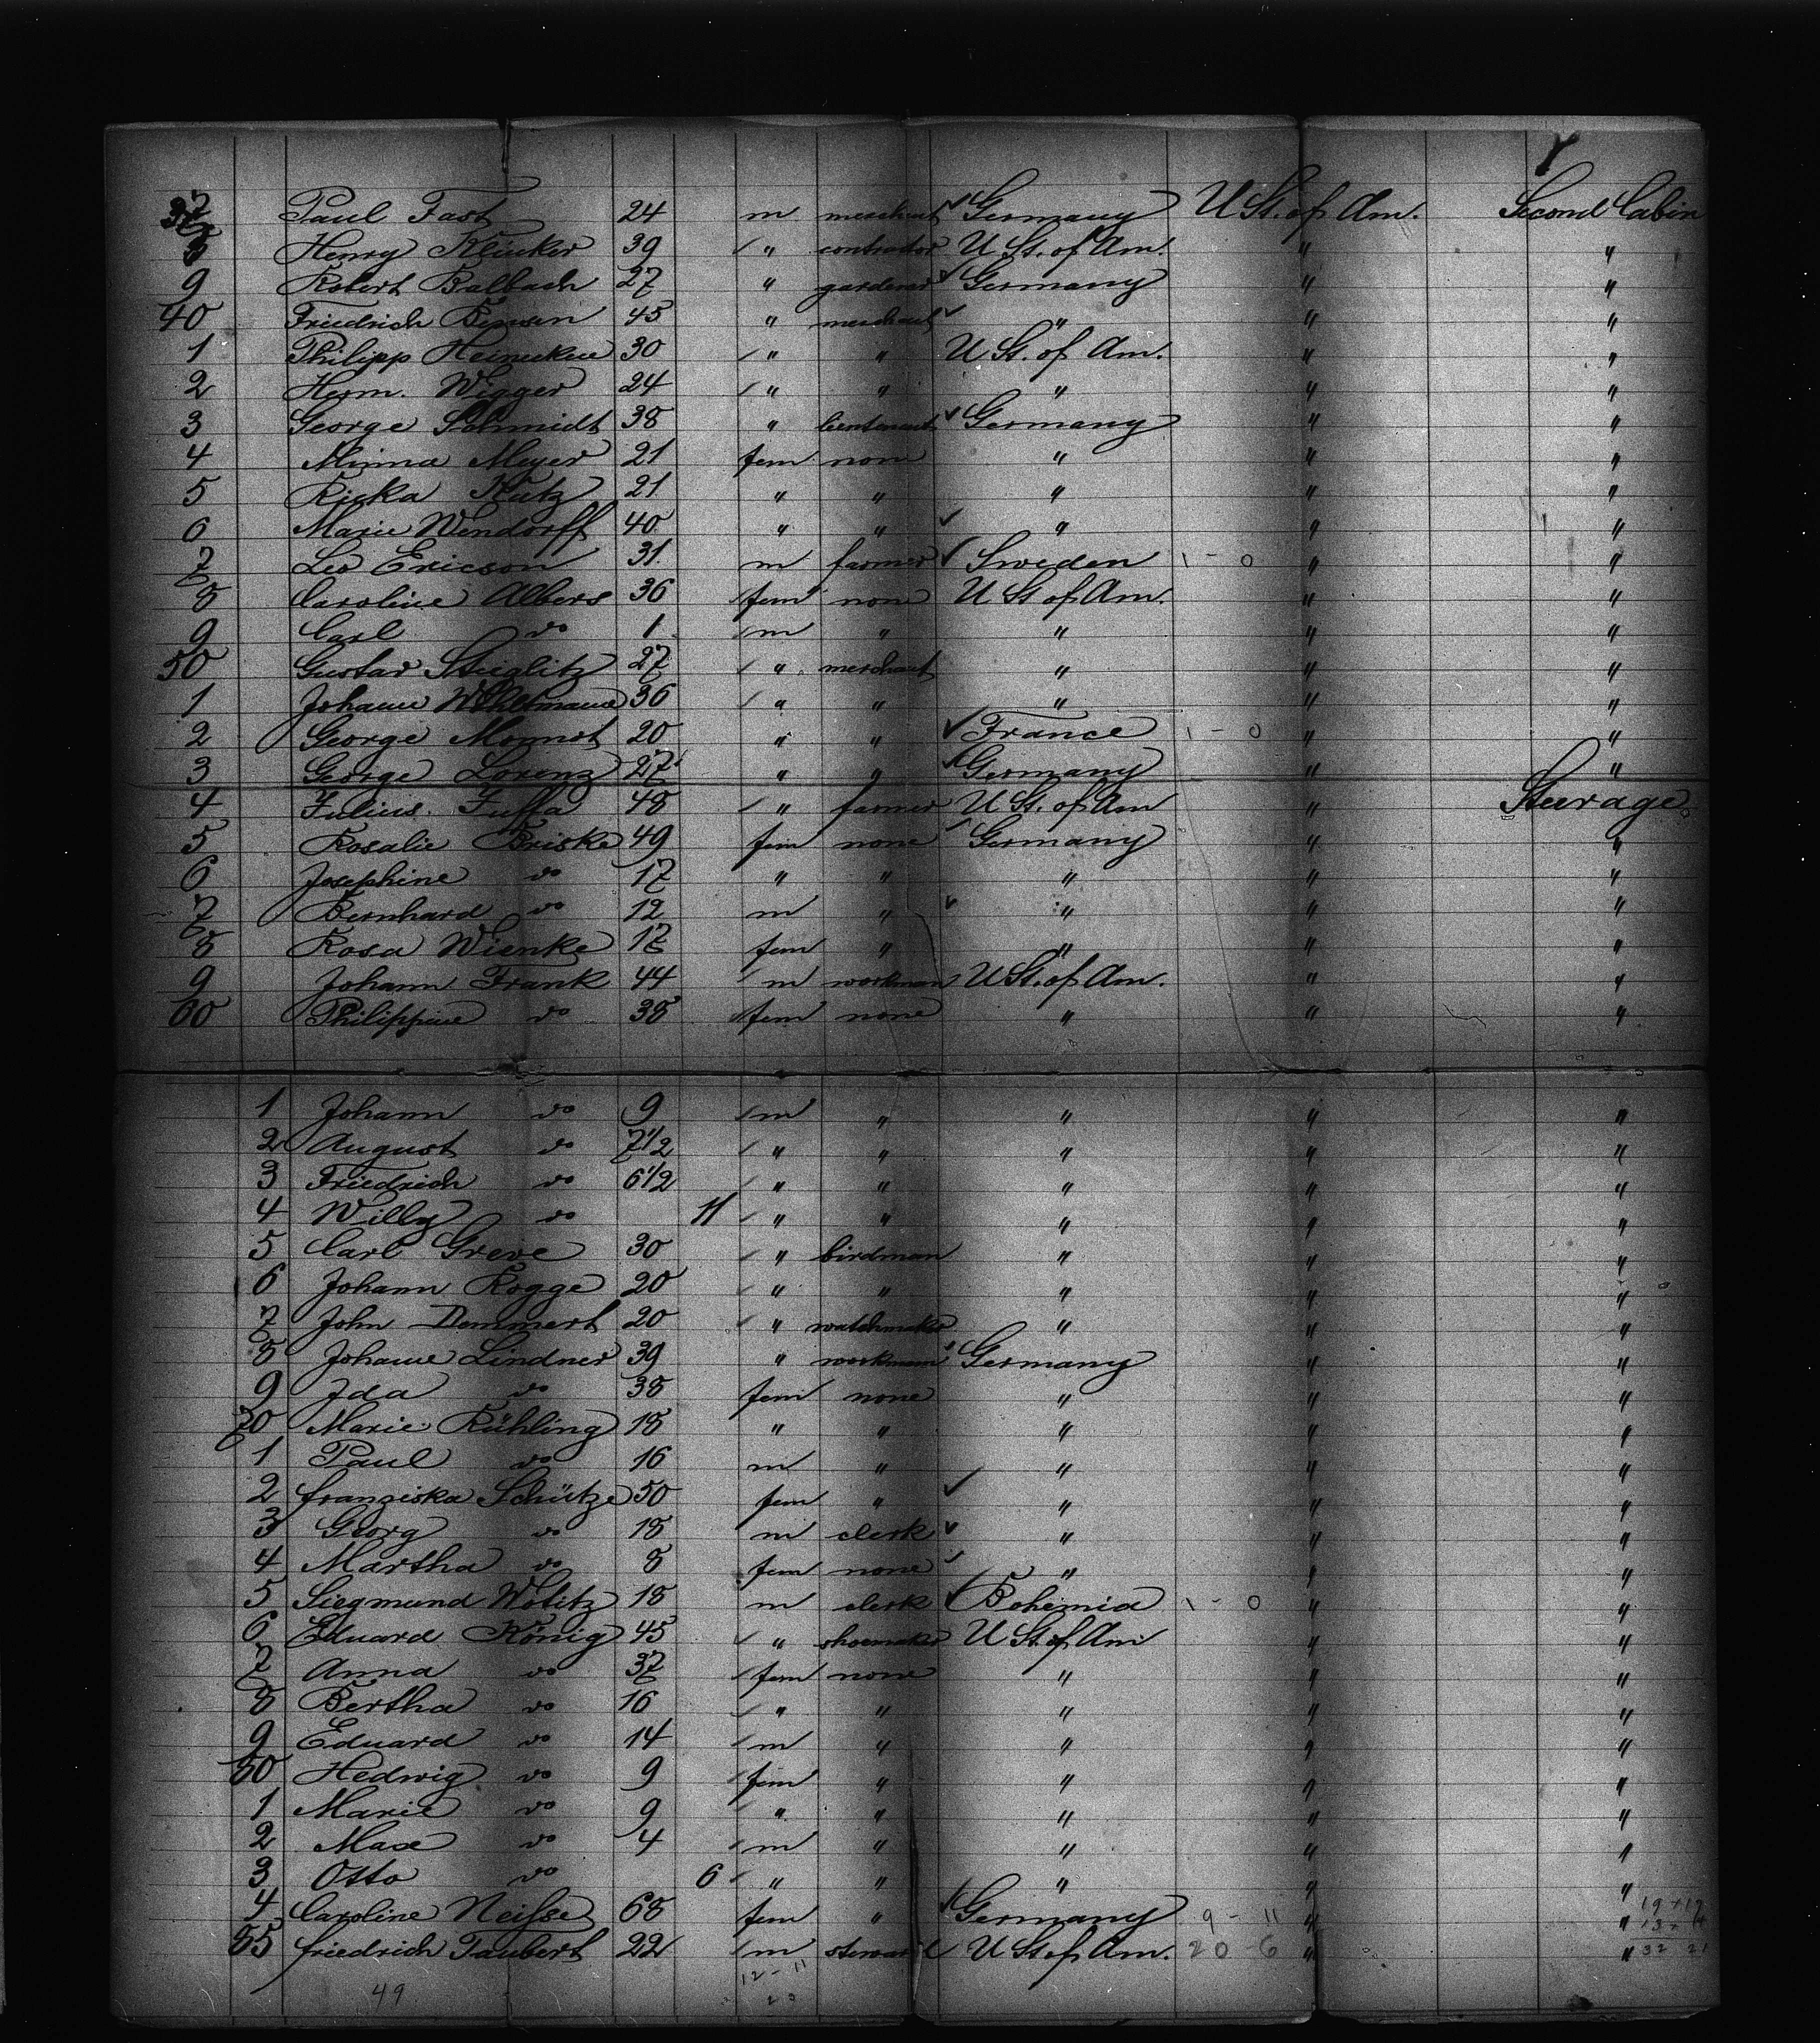 37 Paul Fast 24 m merchant Germany U St. of Am. Second Cabin
8 Henry Klücker 39 " contractor U St. of Am. " "
9 Robert Balbach 27 " gardener Germany " "
40 Friedrich 45 " merchant " " "
1 Philipp Heineken 30 " " U St. of Am. " "
2 Herm. Wigger 24 " " " " "
3 George Schmidt 38 " Germany " "
4 Minna Meyer 21 fem none " " "
5 Ricka Kutz 21 " " " " "
6 Marie Wendorff 40 " " " " "
7 Leo Ericson 31 m farmer Sweden 1 - 0 " "
8 Caroline Albers 36 fem none U St of Am. " "
9 Carl do 1 m " " " "
50 Gustav Stieglitz 27 " merchant " " "
1 Johann 36 " " " " "
2 George Monnot 20 " " France 1 - 0 " "
3 George Lorenz 27 " " Germany " "
4 Julius Juffa 48 " farmer U St. of Am " Steerage
5 Rosalie Briske 49 fem none Germany " "
6 Josephine do 17 " " " " "
7 Bernhard do 12 m " " " "
8 Rosa Wienke 17 fem " " " "
9 Johann Frank 44 m workman U St. of Am. " "
60 Philippine do 38 fem none " " "
1 Johann do 9 m " " " "
2 August do 7 1/2 " " " " "
3 Friedrich do 6 1/2 " " " " "
4 Willy do 11 " " " " "
5 Carl Greve 30 " birdman " " "
6 Johann Rogge 20 " " " " "
7 John Demmert 20 " watchmaker " " "
8 Johann Lindner 39 " workman Germany " "
9 Ida do 38 fem none " " "
70 Marie Rühling 18 " " " " "
1 Paul do 16 m " " " "
2 Franziska Schütze 50 fem " " " "
3 Georg do 18 m clerk " " "
4 Martha do 8 fem none " " "
5 Siegmund Wotitz 18 m clerk Bohemia 1 - 0 " "
6 Eduard König 45 " shoemaker U St. of Am " "
7 Anna do 37 fem none " " "
8 Bertha do 16 " " " " "
9 Eduard do 14 m " " " "
80 Hedwig do 9 fem " " " "
1 Marie do 9 " " " " "
2 Max do 4 m " " " "
3 Otto do 6 " " " " "
4 Caroline Neisse 68 fem " Germany 9 - 11 " "
85 Friedrich Taubert 22 m steward U St of Am. 20 - 6 " " 32 21
12 - 11
49